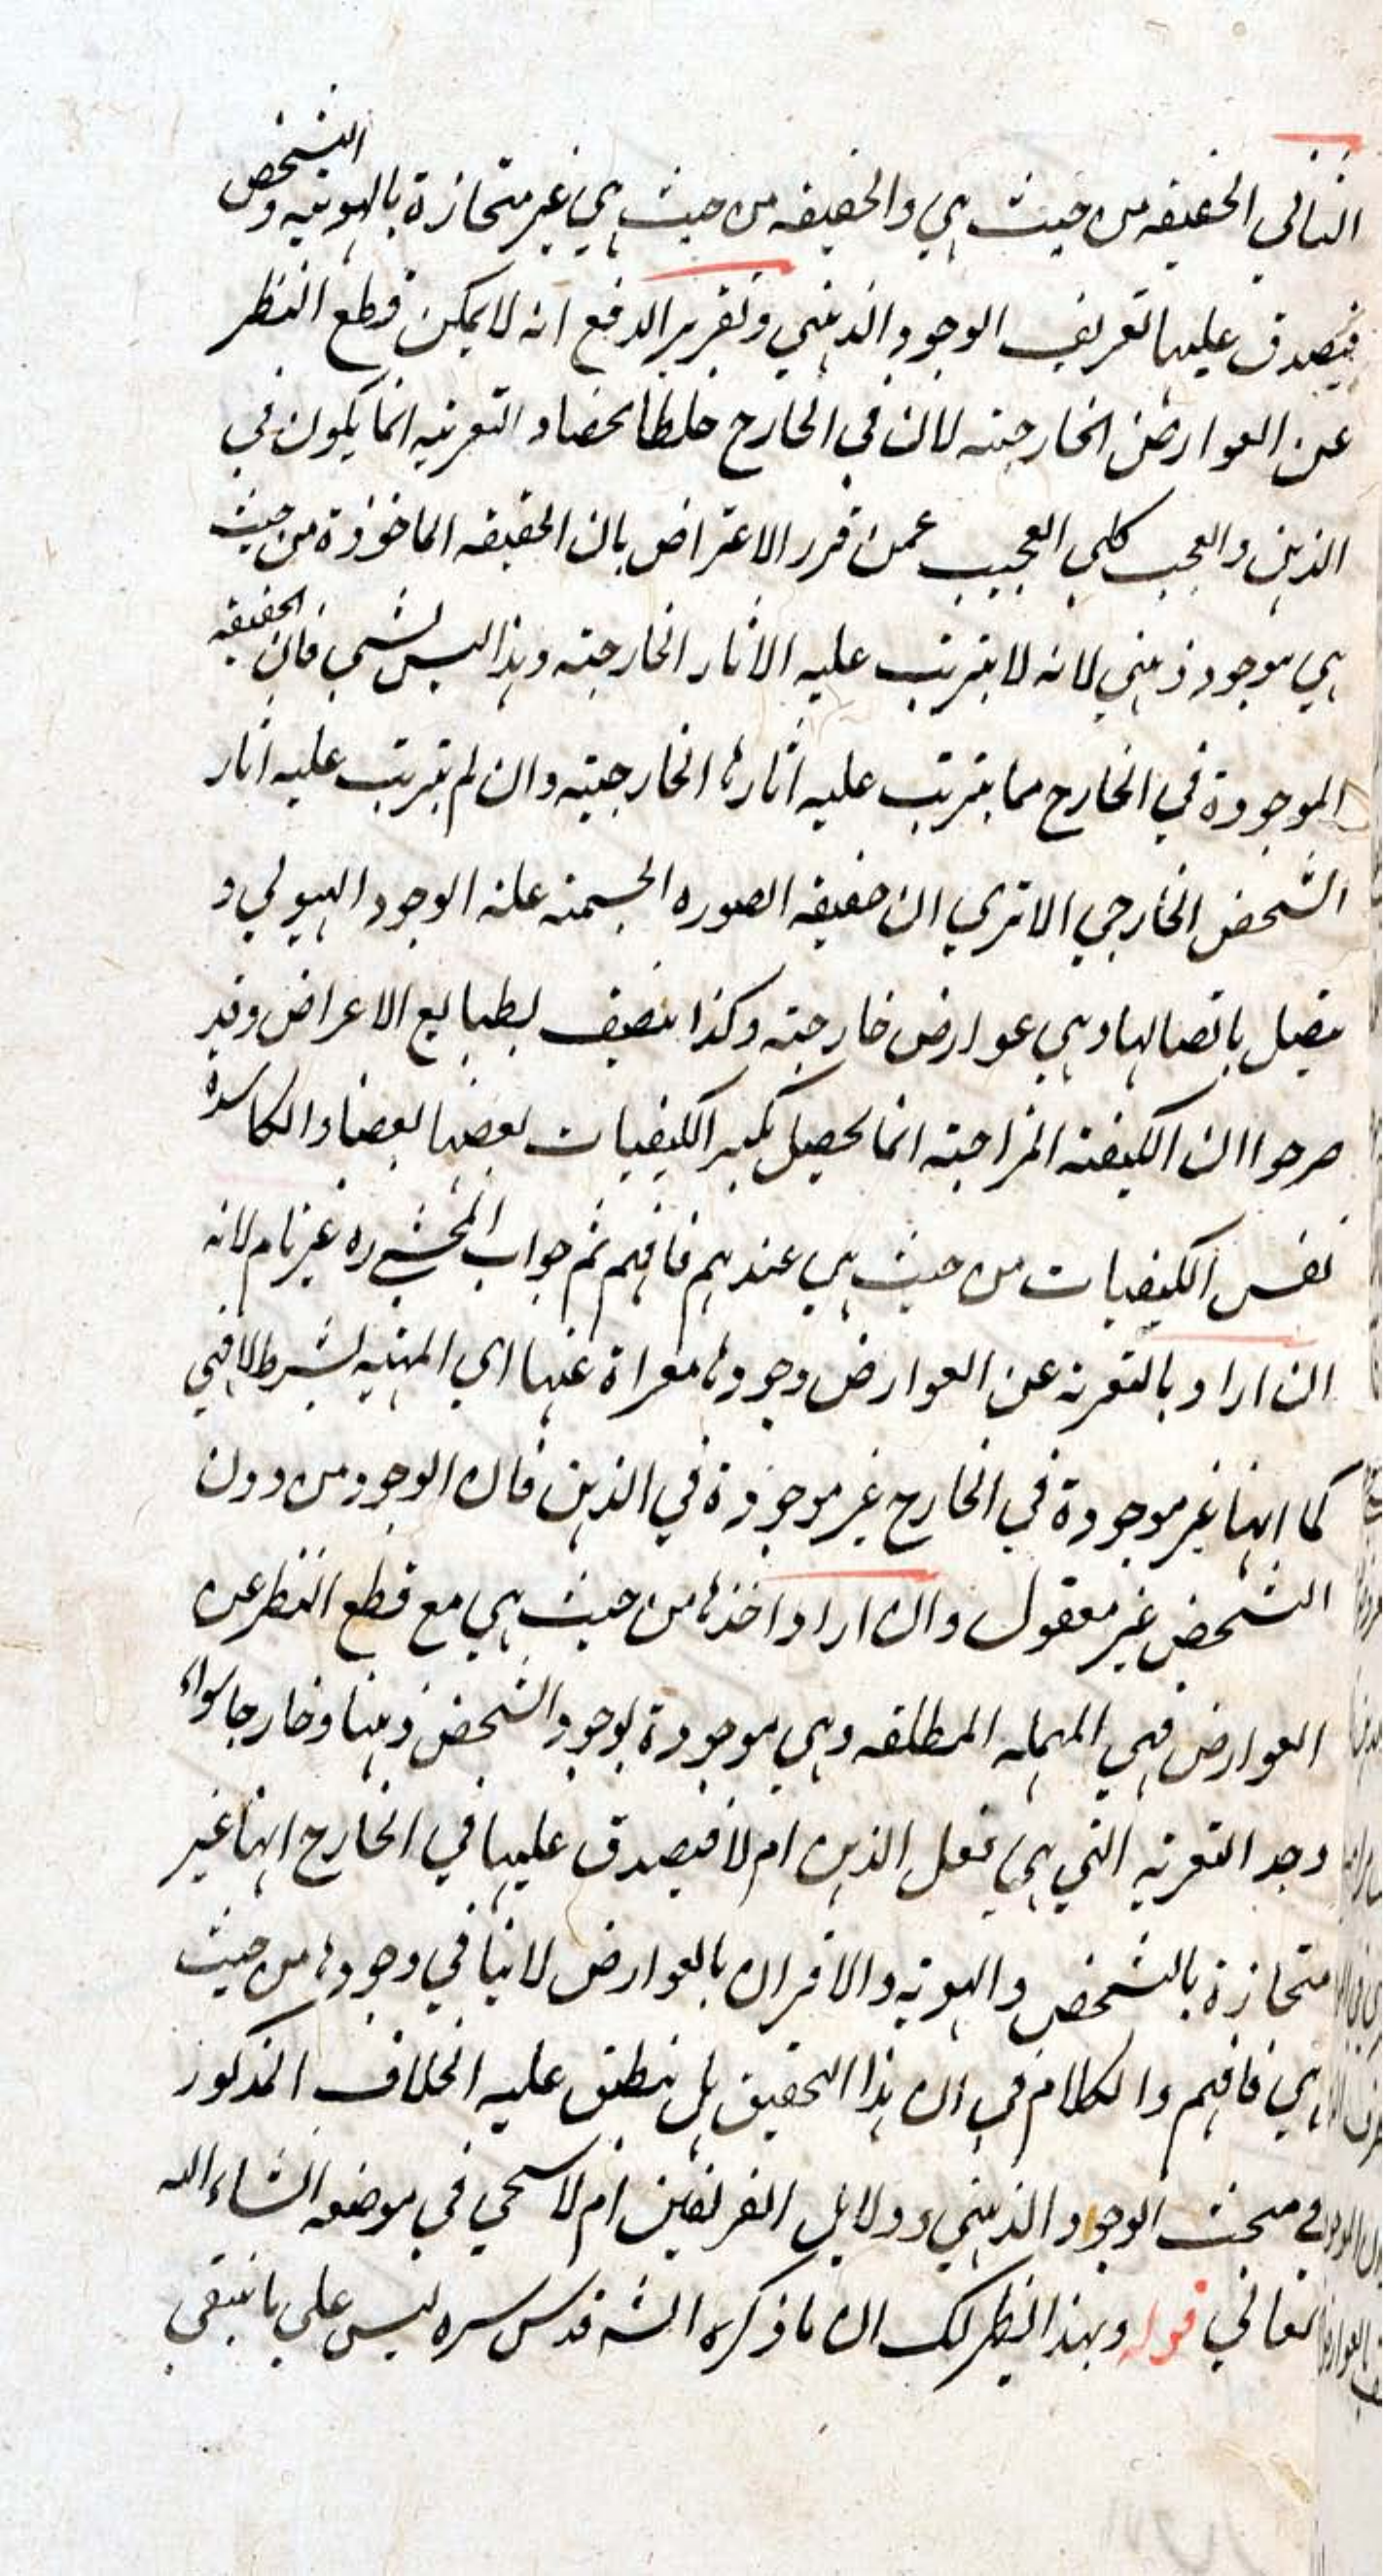 الثاني الحقيقه من حيث هي والحقيقه من حيث هي غير متحازة بالهويه والتشخص
فيصدق عليها تعريف الوجود الذهني وتقرير الدفع انه لا يمكن قطع النظر
عن العوارض الخارجيه لان في الخارج خلطا محضا و التعريه انما يكون في
الذهن والعجب كل العجب عمن قرر الاعتراض بان الحقيقه الماخوذة من حيث
هي موجود ذهني لانه لا يترتب عليه الاثار الخارجيه وهذا ليس بشي فان الحقيقه
الموجودة في الخارج مما يترتب عليه اثارها الخارجيه وان لم يترتب عليه اثار
الشخص الخارجي الا تري ان حقيقه الصوره الجسميه علة الوجود الهيولي و
متصل باتصالها وهي عوارض خارجيه وكذا يتصف بطبايع الاعراض وقد
صرحوا ان الكيفيه المزاجيه انما يحصل بكسر الكيفيات بعضها بعضا والكاسرة
نفس الكيفيات من حيث هي عندهم فافهم ثم جواب المحشي ره غير تام لانه
ان اراد بالتعريه عن العوارض وجودها معراة عنها اي المهيه بشرط لا فهي
كما انها غير موجودة في الخارج غير موجودة في الذهن فان الوجود من دون
التشخص غير معقول وان اراد اخذها من حيث هي مع قطع النظر عن
العوارض فهي المهيه المطلقه وهي موجودة بوجود الشخص ذهنا وخارجا سواء
وجد التعريه التي هي فعل الذهن ام لا فيصدق عليها في الخارج انها غير
متحازة بالتشخص والهويه والاقران بالعوارض لا ينافي وجودها من حيث
هي فافهم والكلام في ان هذا التحقيق هل ينطبق عليه الخلاف المذكور
في مبحث الوجود الذهني ودلايل الفريقين ام لا سيجي في موضعه انشاء الله
تعالي قوله وبهذا يظهر لك ان ما ذكره الشه قدس سره ليس علي ما ينبغي